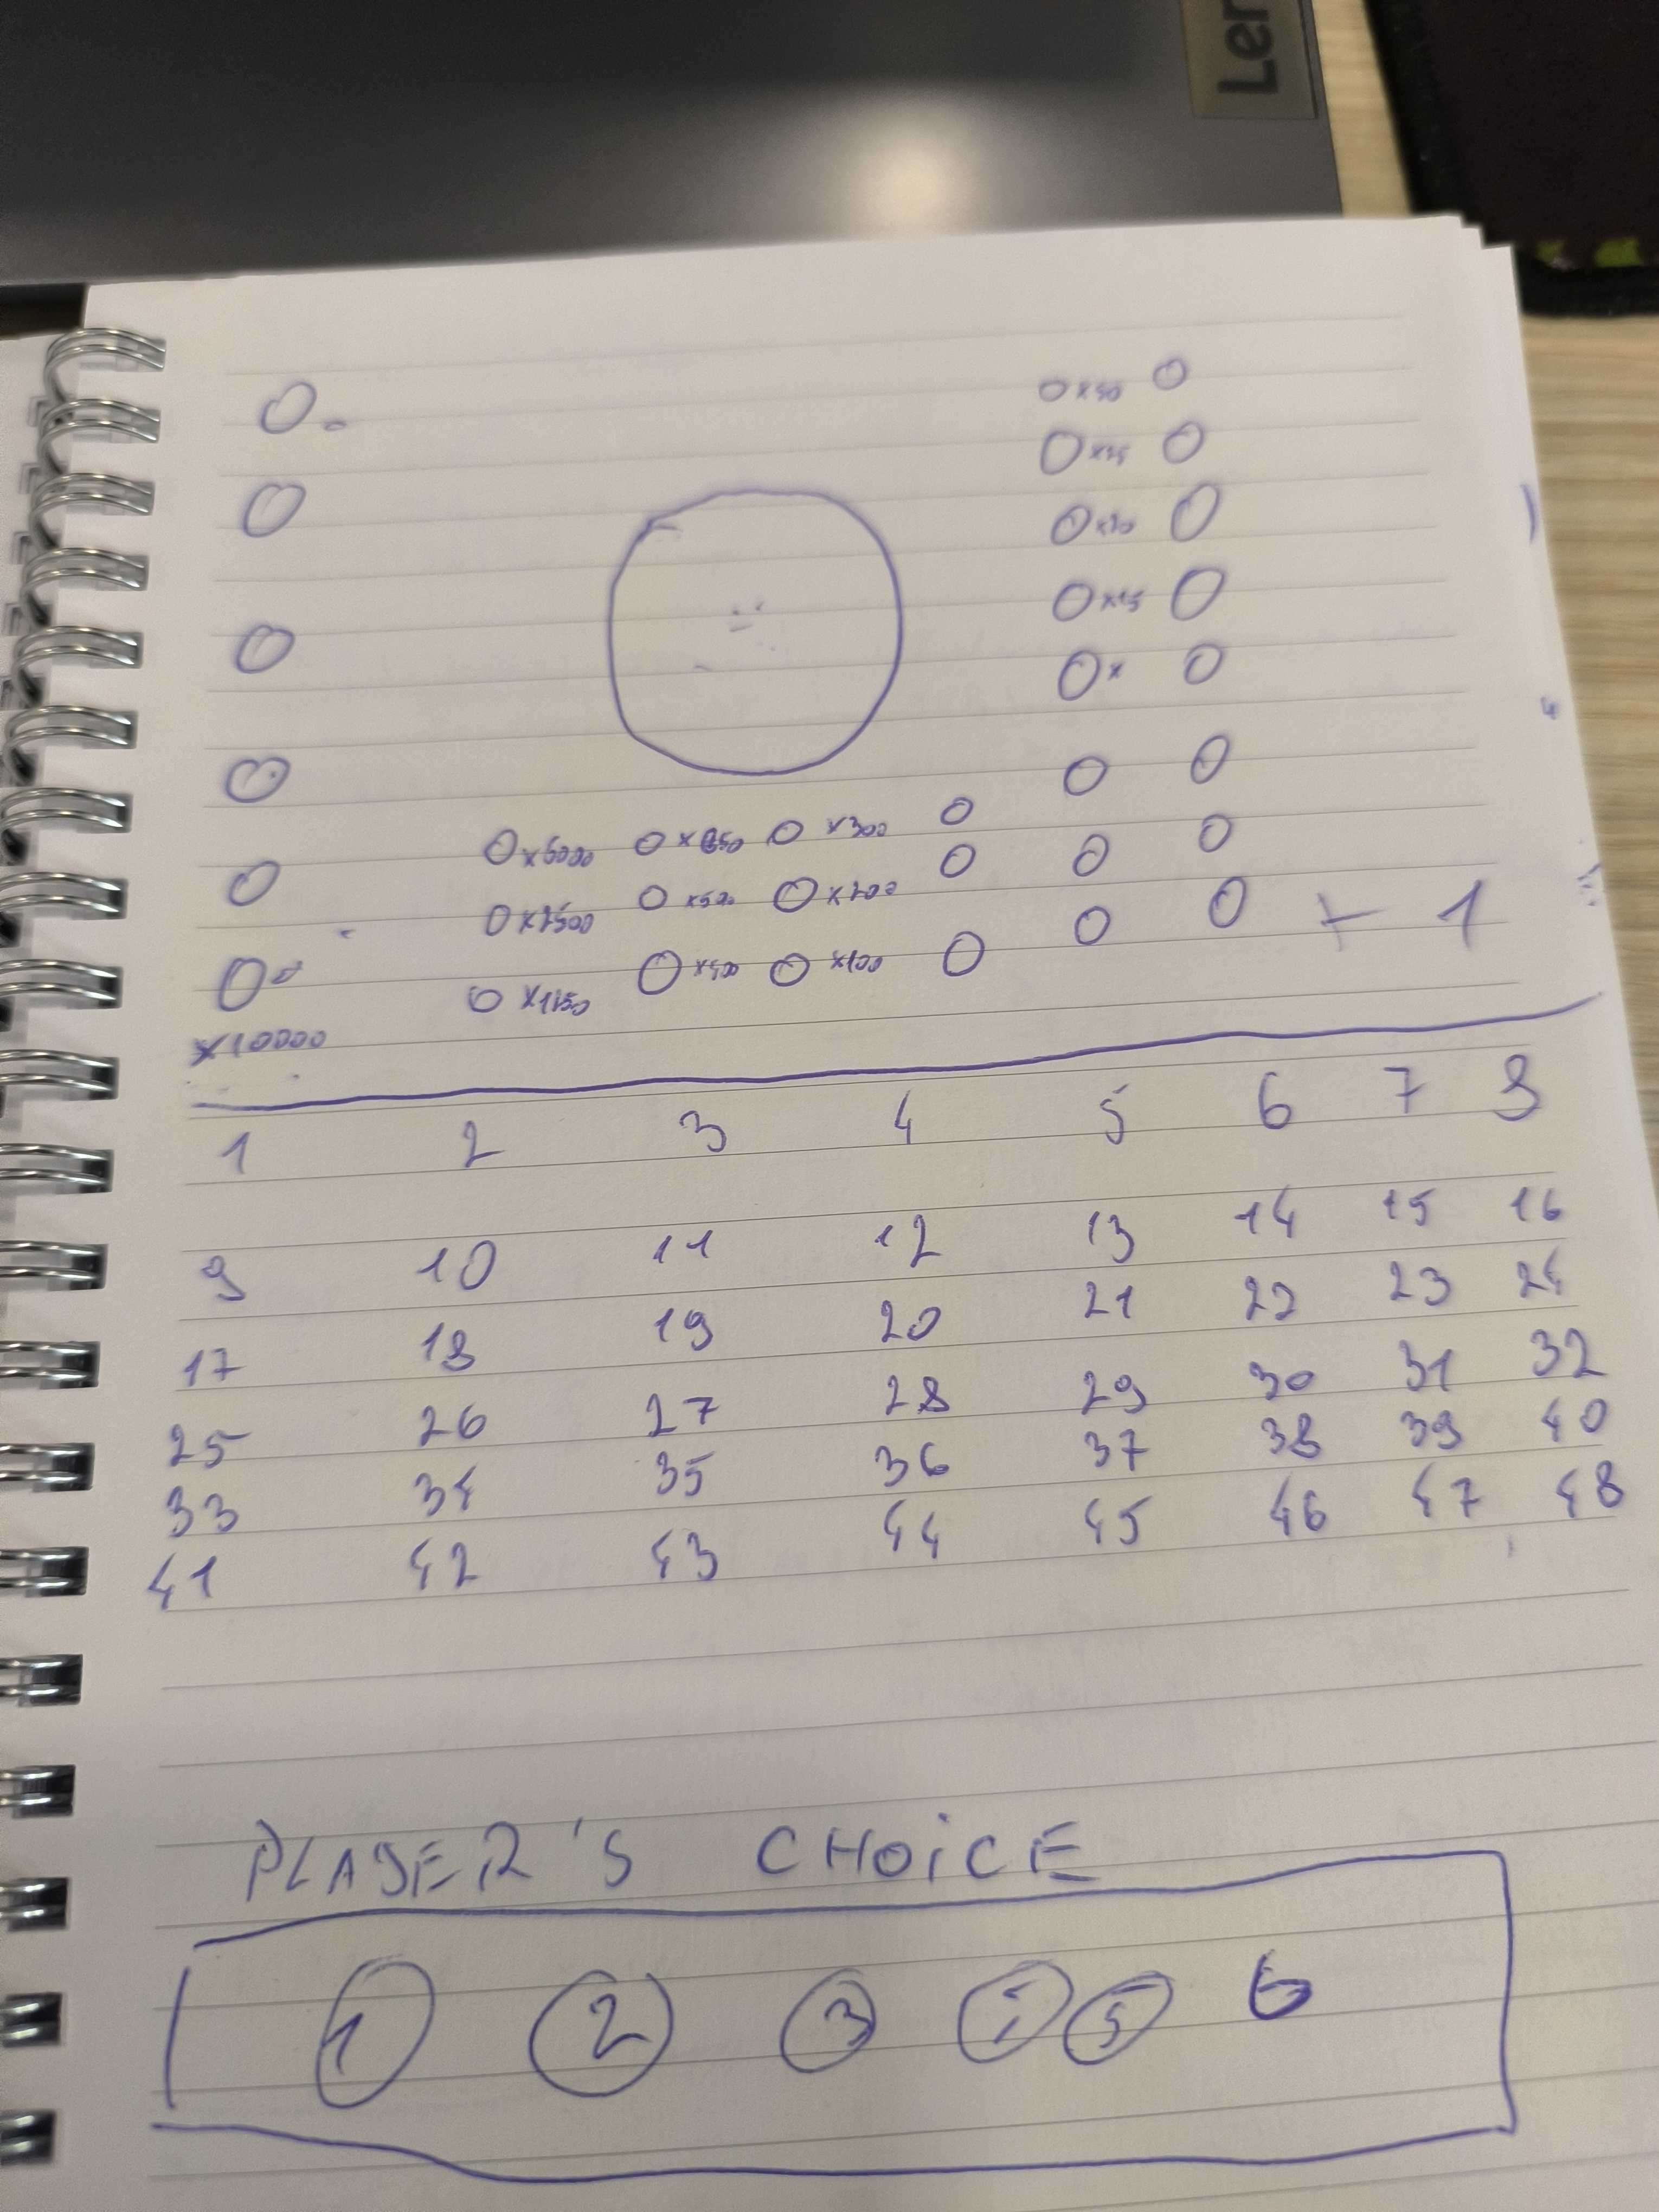 Len
x90
x25
x20
x15
x
x5000 x850 x300
x2500 x500 x200
x1250 x400 x100
+ 1
x10000
1 2 3 4 5 6 7 8
9 10 11 12 13 14 15 16
17 18 19 20 21 22 23 24
25 26 27 28 29 30 31 32
33 34 35 36 37 38 39 40
41 42 43 44 45 46 47 48
PLAYER'S CHOICE
1 2 3 5 6